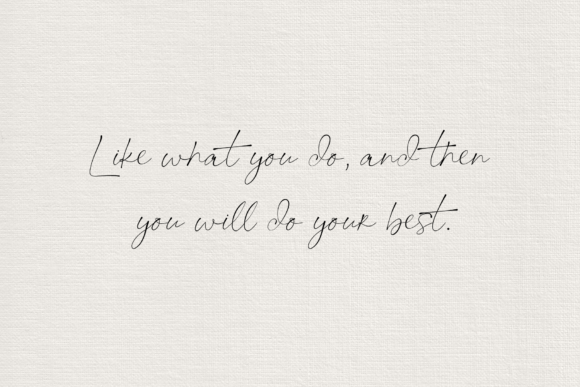 Like what you do, and then
you will do your best.